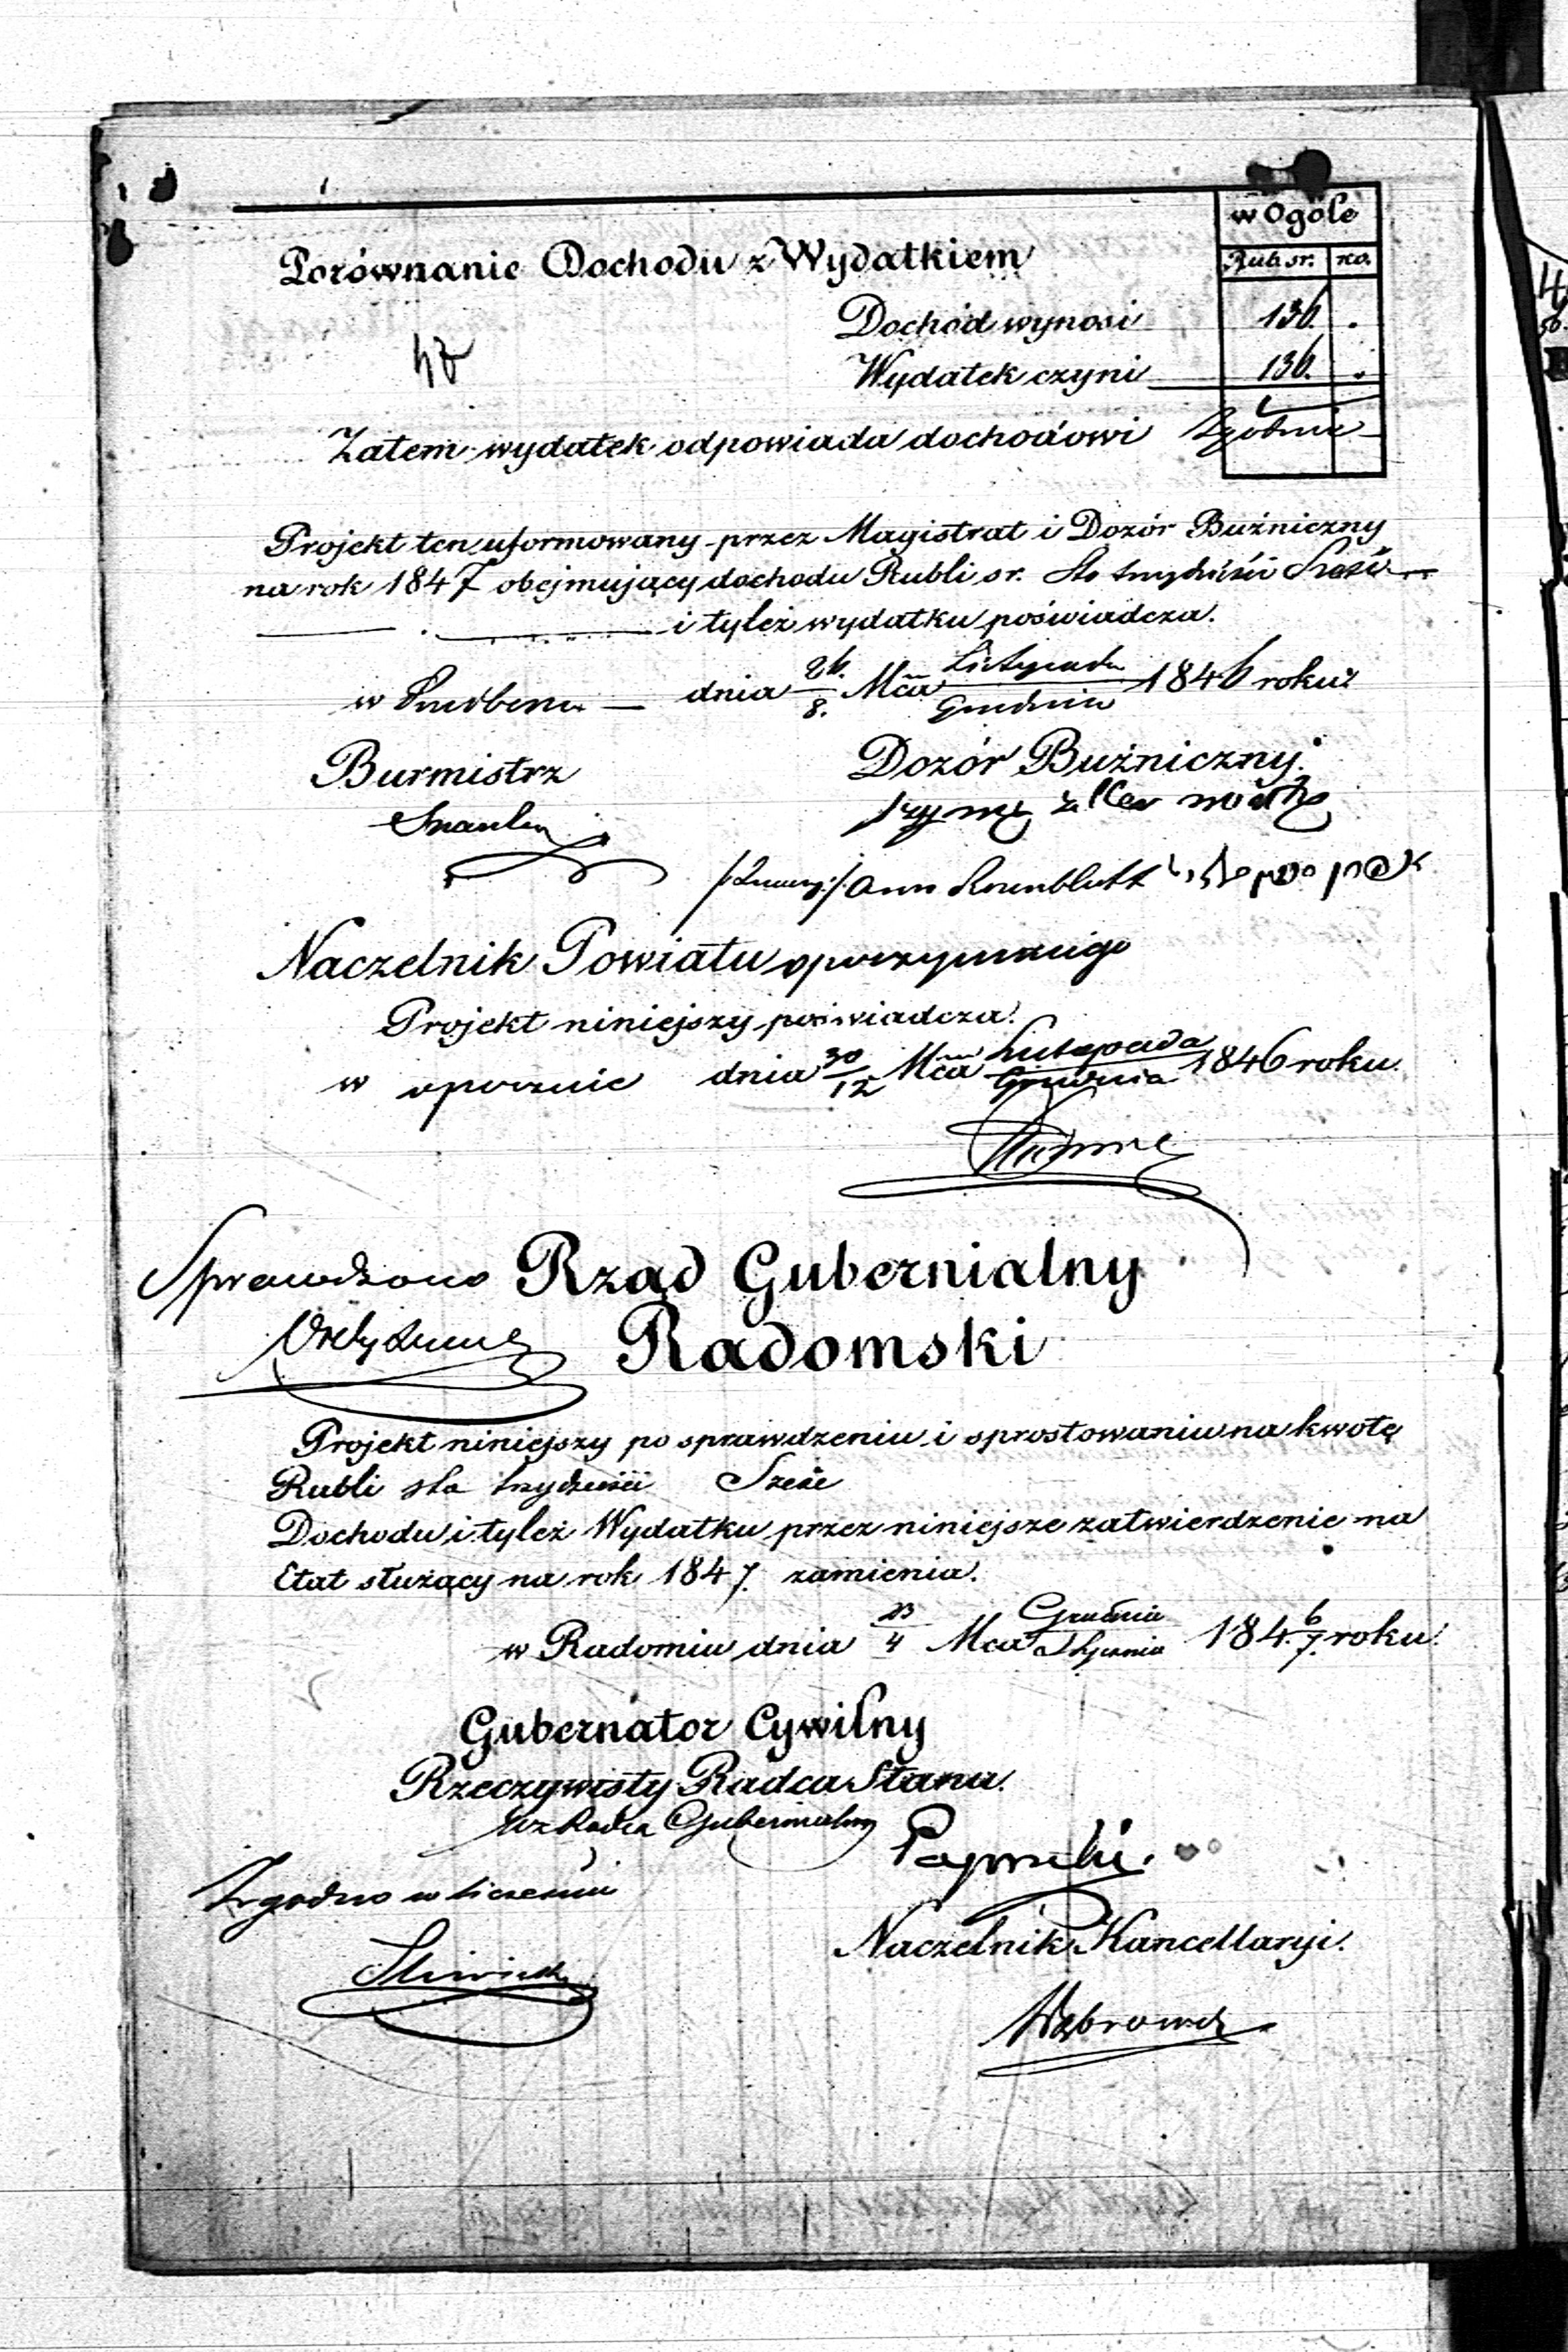 w Ogóle
Rub. sr. ko.
Porównanie Dochodu z Wydatkiem
Dochód wynosi 136. .
Wydatek czyni 136. .
Zatem wydatek odpowiada dochodowi Zgodnie
Projekt ten uformowany przez Magistrat i Dozór Bużniczny
na rok 1847 obejmujący dochodu Rubli sr. Sto trzydzieści Sześć
i tyleż wydatku poświadcza.
w dnia 26./8. Mca Listopada/Grudnia 1846 roku
Burmistrz Dozór Bużniczny.
Naczelnik Powiatu opoczyńskiego
Projekt niniejszy poświadcza.
w opocznie dnia 30/12 Mca Listopada/Grudnia 1846 roku.
Sprawdzono Rząd Gubernialny
Radomski
Projekt niniejszy po sprawdzeniu i sprostowaniu na kwotę
Rubli sto trzydzieści Sześć
Dochodu i tyleż Wydatku przez niniejsze zatwierdzenie na
Etat służący na rok 1847. zamienia.
w Radomiu dnia 23/4 Mca Grudnia/Stycznia 184 6/7. roku.
Gubernator Cywilny
Rzeczywisty Radca Stanu.
wz Radca Gubernialny
Zgodno w liczeniu
Naczelnik Kancellaryi.